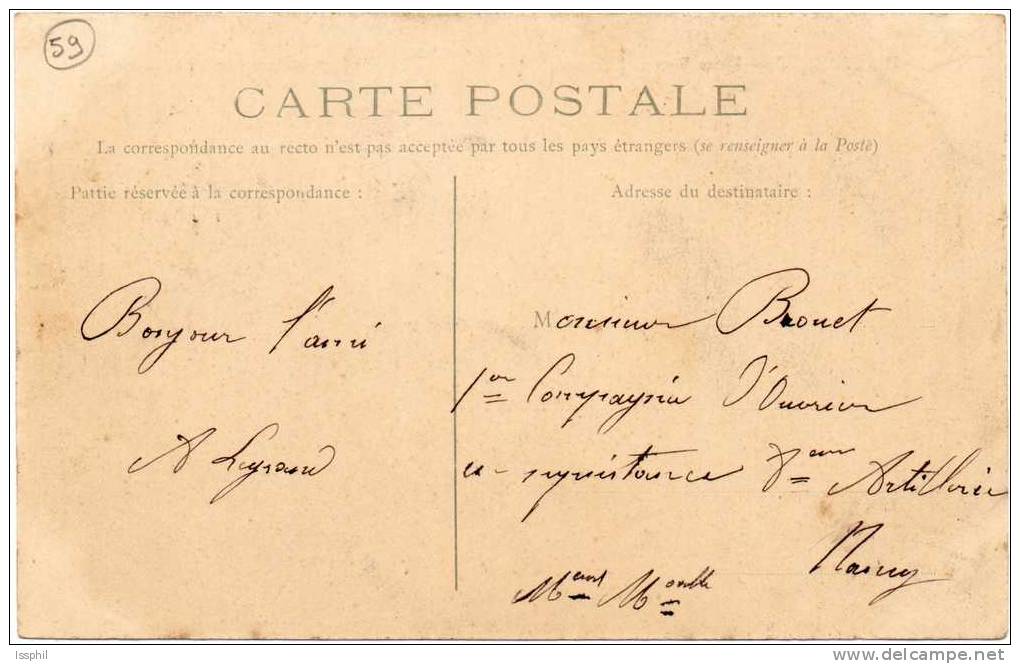 59
CARTE POSTALE
La correspondance au recto n'est pas acceptée par tous les pays étrangers (se renseigner à la Poste)
Partie réservée à la correspondance :
Adresse du destinataire :
Bonjour l'ami
A Legrand
Monsieur Brouet
1ère Compagnie d'Ouvrier
en subsistance 8ème Artillerie
Nancy
Mthe Mselle
Issphil
delcampe.net